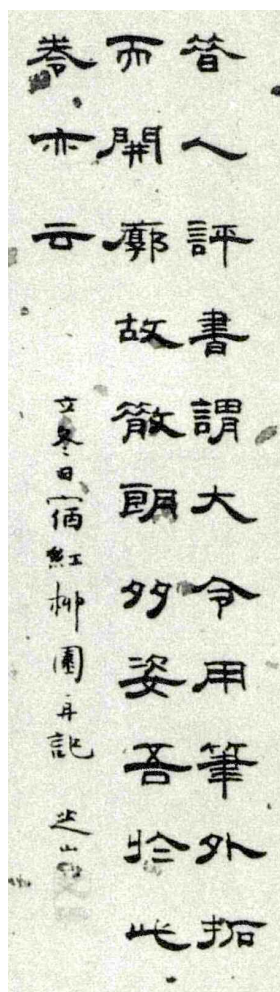 昔人評書謂大令用筆外拓
而開廓故散朗多姿吾於此
卷亦云
立冬日宿紅柳園再記 芝山